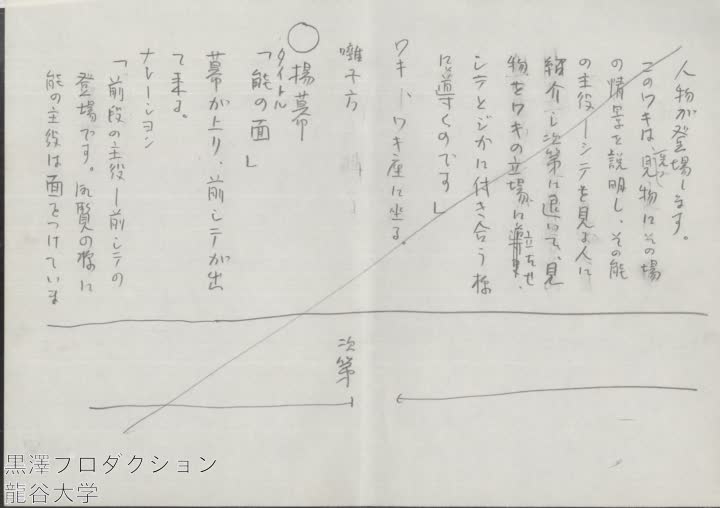 人物が登場します。
このワキは、見物にその場
の情景を説明し、その能
の主役―シテを見る人に
紹介し次第に退いて、見
物をワキの立場に立たせ、
シテとジかに付き合う様
に導くのです」
ワキ、ワキ座に坐る。
囃子方
○揚幕
タイトル
「能の面」
幕が上り、前シテが出
て来る。
ナレーション
「前段の主役―前シテの
登場です。御覧の様に
能の主役は面をつけていま
次第
黒澤プロダクション
龍谷大学